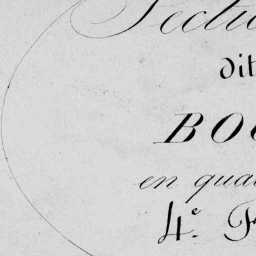 Sectio
dit
BOU
en qua
4.e F